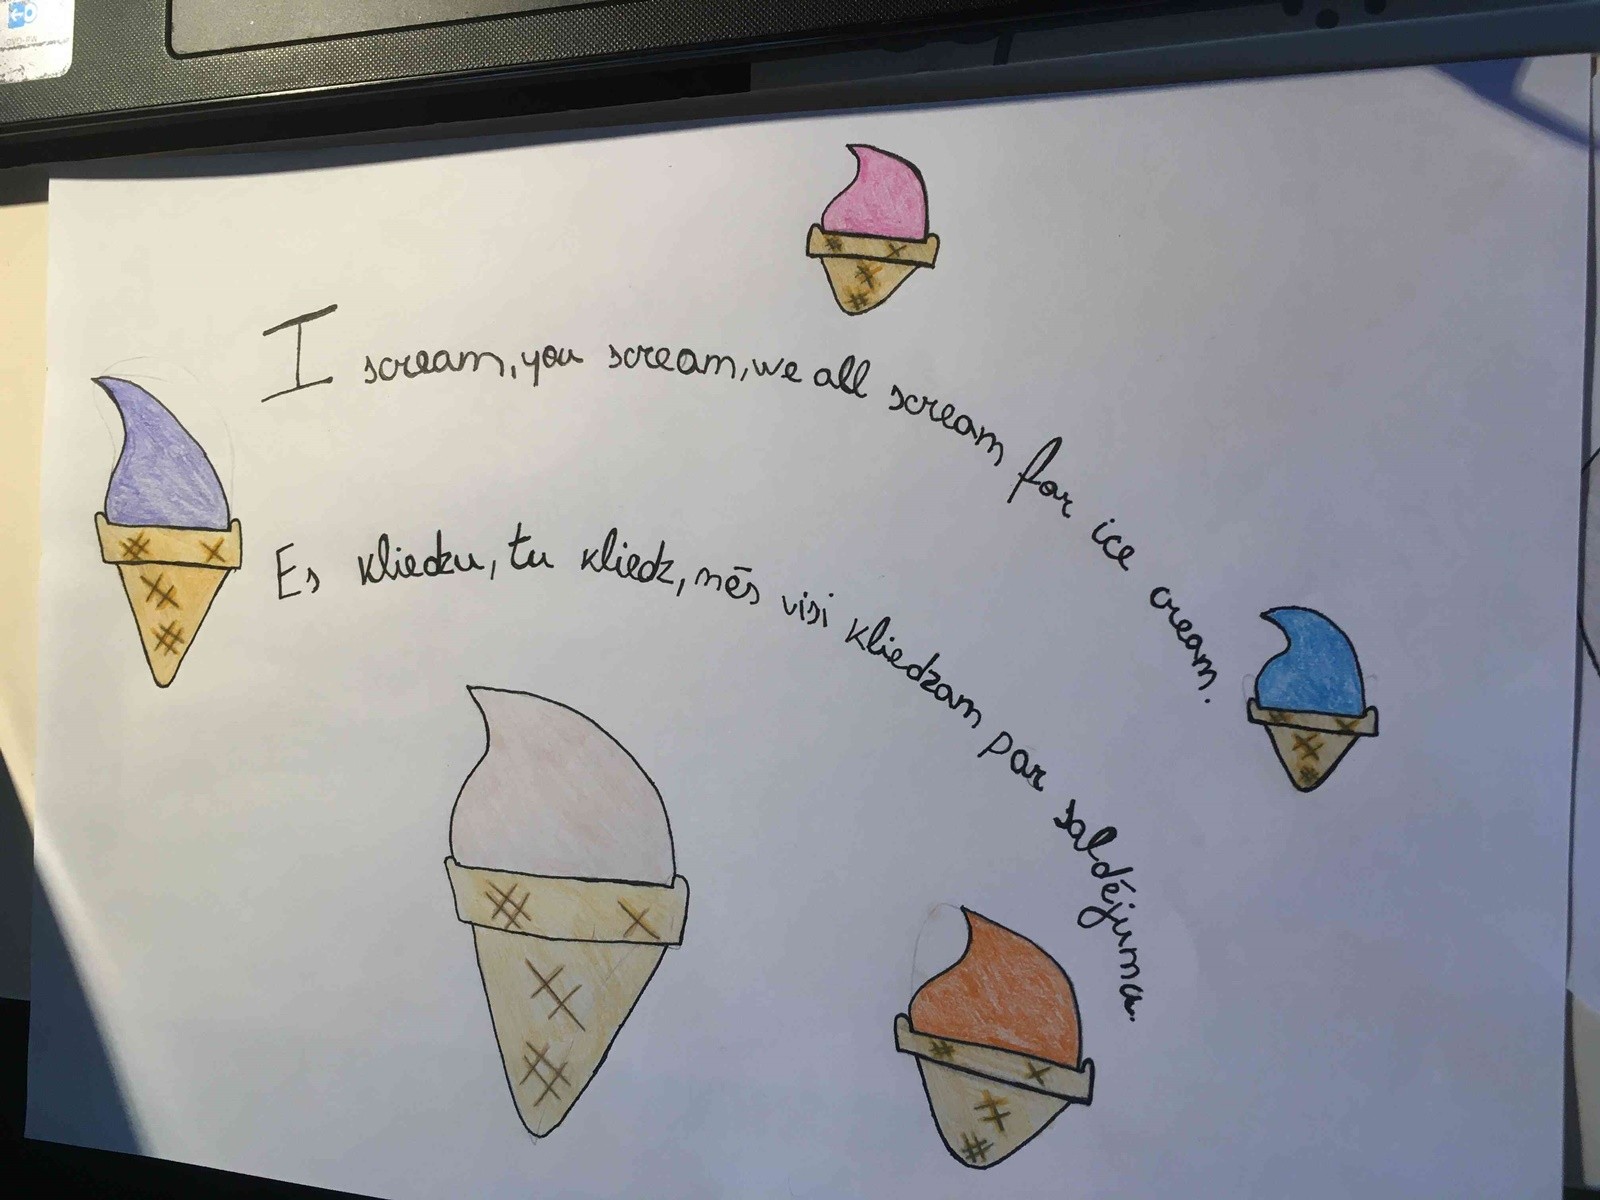 I scream, you scream, we all scream for ice cream.
Es kliedzu, tu kliedz, mēs visi kliedzam par saldējumu.